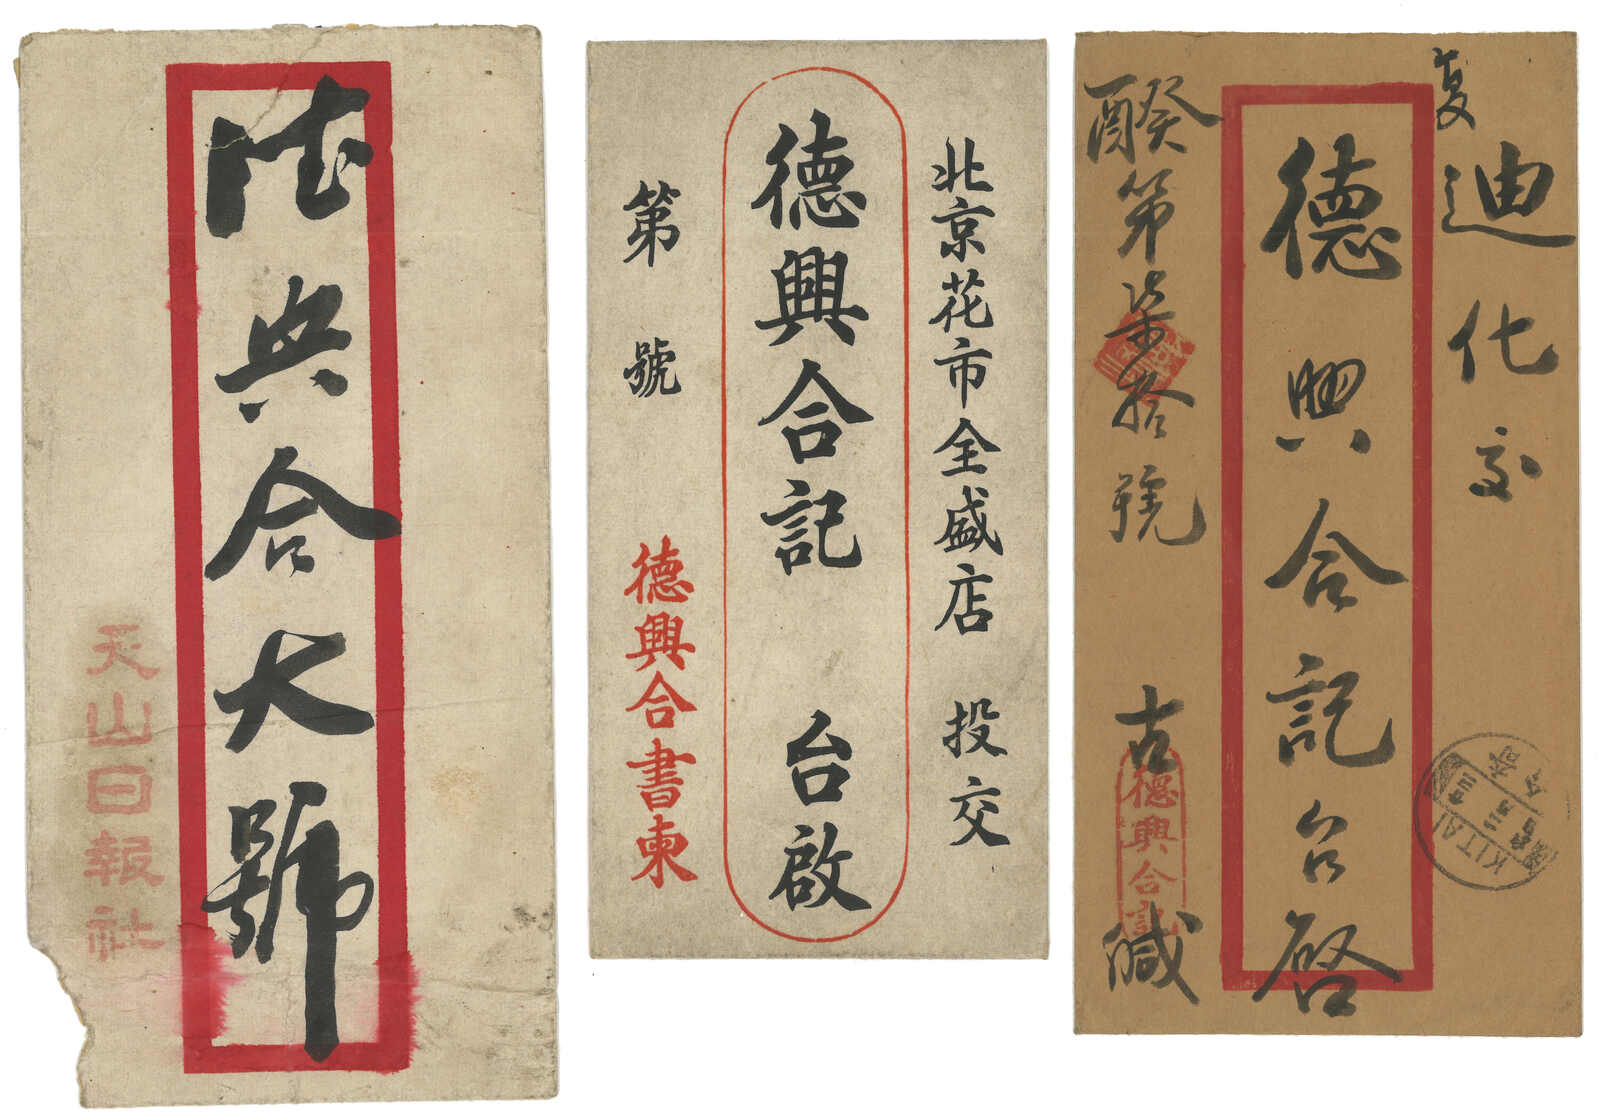 德興合大號
天山日報社
北京花市全盛店 投交
德興合記 台啟
第 號
德興合書柬
迪化交
德興合記台啓
第柒拾號
古 緘
德興合記
KITAI